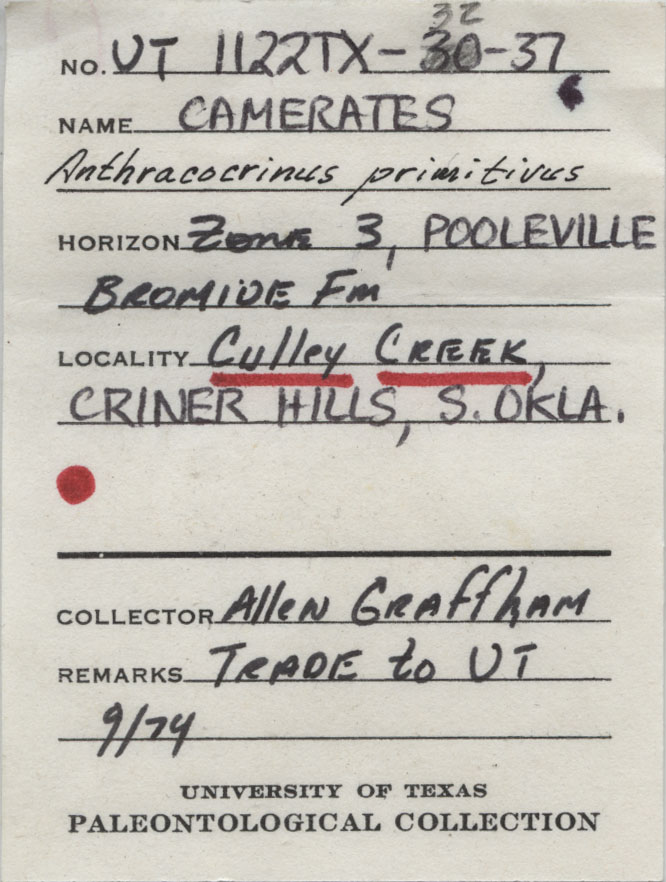 32
NO. UT 1122TX-30-37
NAME CAMERATES
Anthracocrinus primitivus
HORIZON Zone 3, POOLEVILLE
BROMIDE Fm
LOCALITY Culley CREEK,
CRINER HILLS, S. OKLA.
COLLECTOR Allen GRAffham
REMARKS TRADE to UT
9/74
UNIVERSITY OF TEXAS
PALEONTOLOGICAL COLLECTION